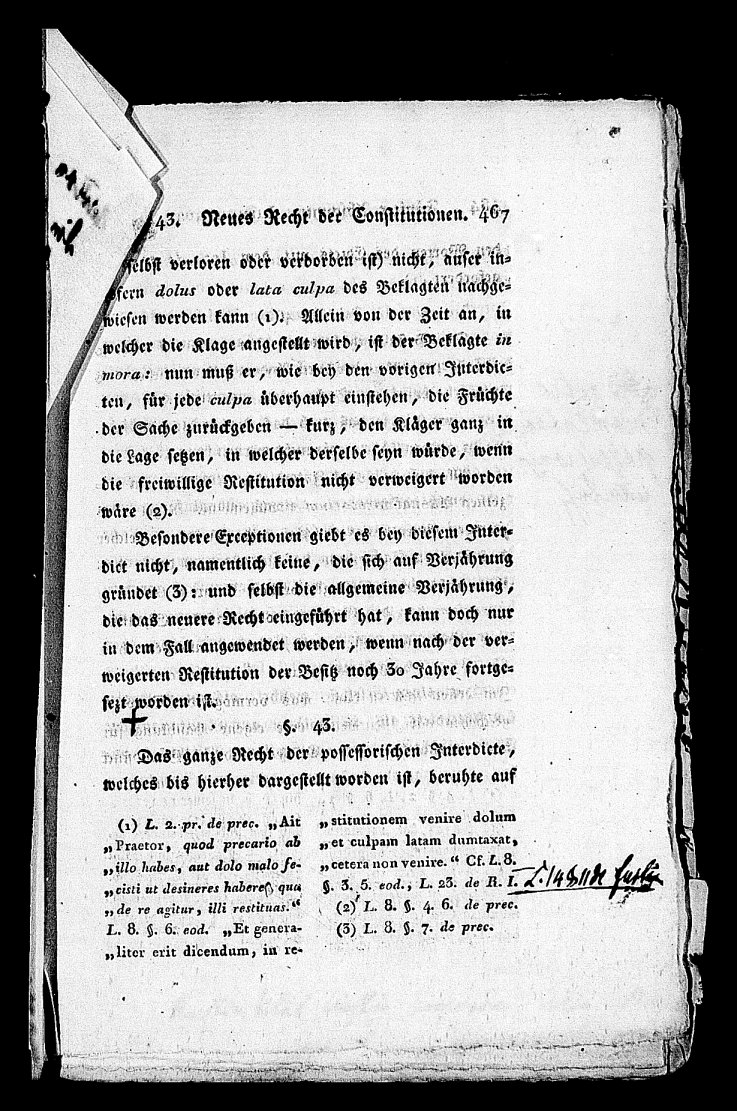 43. Neues Recht der Constitutionen. 467
selbst verloren oder verdorben ist) nicht, auser in-
sofern dolus oder lata culpa des Beklagten nachge-
wiesen werden kann (1). Allein von der Zeit an, in
welcher die Klage angestellt wird, ist der Beklagte in
mora: nun muß er, wie bey den vorigen Interdic-
ten, für jede culpa überhaupt einstehen, die Früchte
der Sache zurückgeben — kurz, den Kläger ganz in
die Lage setzen, in welcher derselbe seyn würde, wenn
die freiwillige Restitution nicht verweigert worden
wäre (2).
Besondere Exceptionen giebt es bey diesem Inter-
dict nicht, namentlich keine, die sich auf Verjährung
gründet (3): und selbst die allgemeine Verjährung,
die das neuere Recht eingeführt hat, kann doch nur
in dem Fall angewendet werden, wenn nach der ver-
weigerten Restitution der Besitz noch 30 Jahre fortge-
sezt worden ist.
§. 43.
Das ganze Recht der possessorischen Interdicte,
welches bis hierher dargestellt worden ist, beruhte auf
(1) L. 2. pr. de prec. „Ait
„Praetor, quod precario ab
„illo habes, aut dolo malo fe-
„cisti ut desineres habere, qua
„de re agitur, illi restituas.“
L. 8. §. 6. eod. „Et genera-
„liter erit dicendum, in re-
„stitutionem venire dolum
„et culpam latam dumtaxat,
„cetera non venire.“ Cf. L. 8.
§. 3. 5. eod., L. 23. de R. I.
(2) L. 8. §. 4. 6. de prec.
(3) L. 8. §. 7. de prec.